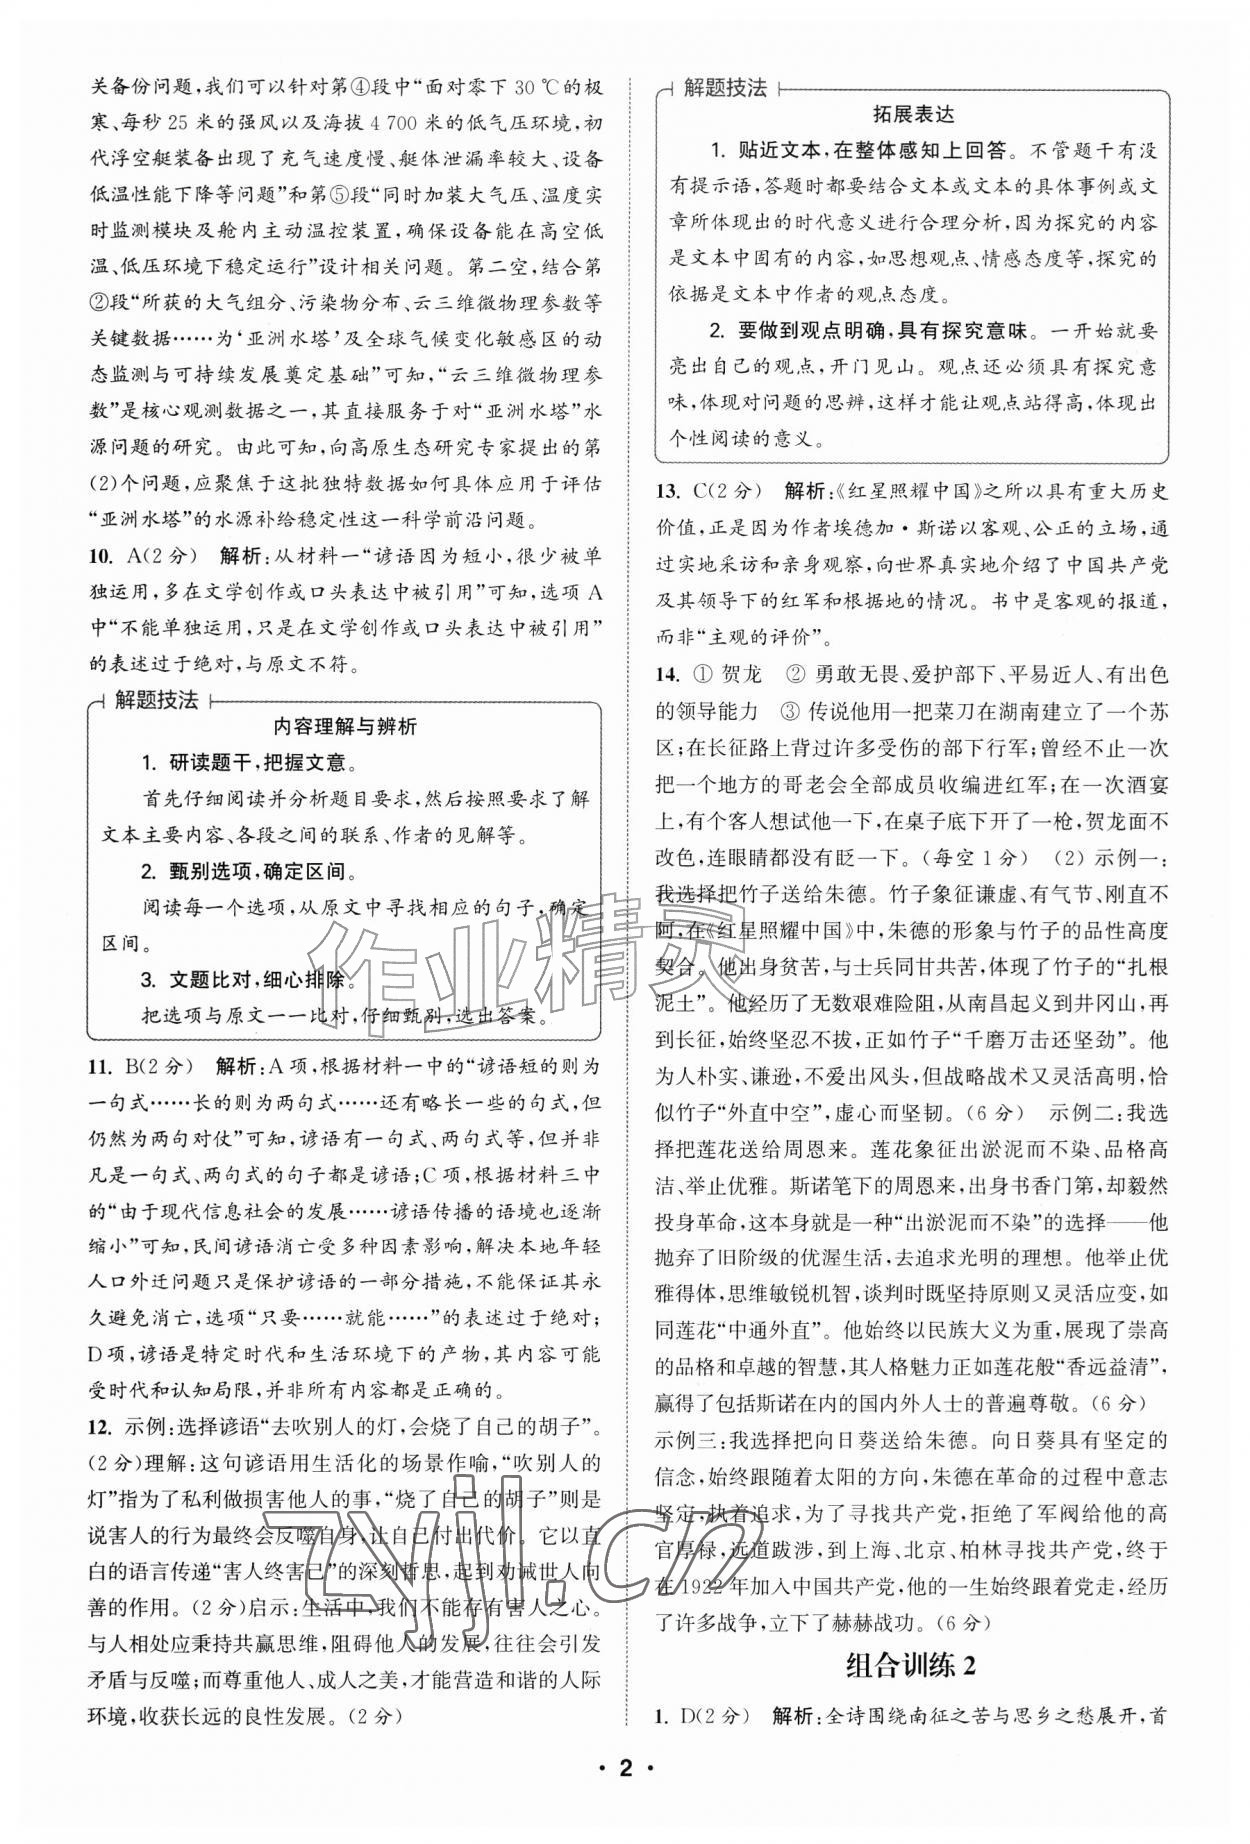 关备份问题,我们可以针对第④段中“面对零下 30 ℃的极
寒、每秒 25 米的强风以及海拔 4 700 米的低气压环境,初
代浮空艇装备出现了充气速度慢、艇体泄漏率较大、设备
低温性能下降等问题”和第⑤段“同时加装大气压、温度实
时监测模块及舱内主动温控装置,确保设备能在高空低
温、低压环境下稳定运行”设计相关问题。第二空,结合第
②段“所获的大气组分、污染物分布、云三维微物理参数等
关键数据……为‘亚洲水塔’及全球气候变化敏感区的动
态监测与可持续发展奠定基础”可知,“云三维微物理参
数”是核心观测数据之一,其直接服务于对“亚洲水塔”水
源问题的研究。由此可知,向高原生态研究专家提出的第
(2)个问题,应聚焦于这批独特数据如何具体应用于评估
“亚洲水塔”的水源补给稳定性这一科学前沿问题。
10. A(2 分) 解析:从材料一“谚语因为短小,很少被单
独运用,多在文学创作或口头表达中被引用”可知,选项 A
中“不能单独运用,只是在文学创作或口头表达中被引用”
的表述过于绝对,与原文不符。
解题技法
内容理解与辨析
1. 研读题干,把握文意。
首先仔细阅读并分析题目要求,然后按照要求了解
文本主要内容、各段之间的联系、作者的见解等。
2. 甄别选项,确定区间。
阅读每一个选项,从原文中寻找相应的句子,确定
区间。
3. 文题比对,细心排除。
把选项与原文一一比对,仔细甄别,选出答案。
11. B(2 分) 解析:A 项,根据材料一中的“谚语短的则为
一句式……长的则为两句式……还有略长一些的句式,但
仍然为两句对仗”可知,谚语有一句式、两句式等,但并非
凡是一句式、两句式的句子都是谚语;C 项,根据材料三中
的“由于现代信息社会的发展……谚语传播的语境也逐渐
缩小”可知,民间谚语消亡受多种因素影响,解决本地年轻
人口外迁问题只是保护谚语的一部分措施,不能保证其永
久避免消亡,选项“只要……就能……”的表述过于绝对;
D 项,谚语是特定时代和生活环境下的产物,其内容可能
受时代和认知局限,并非所有内容都是正确的。
12. 示例:选择谚语“去吹别人的灯,会烧了自己的胡子”。
(2 分)理解:这句谚语用生活化的场景作喻,“吹别人的
灯”指为了私利做损害他人的事,“烧了自己的胡子”则是
说害人的行为最终会反噬自身,让自己付出代价。它以直
白的语言传递“害人终害己”的深刻哲思,起到劝诫世人向
善的作用。(2 分)启示:生活中,我们不能存有害人之心。
与人相处应秉持共赢思维,阻碍他人的发展,往往会引发
矛盾与反噬;而尊重他人、成人之美,才能营造和谐的人际
环境,收获长远的良性发展。(2 分)
解题技法
拓展表达
1. 贴近文本,在整体感知上回答。不管题干有没
有提示语,答题时都要结合文本或文本的具体事例或文
章所体现出的时代意义进行合理分析,因为探究的内容
是文本中固有的内容,如思想观点、情感态度等,探究的
依据是文本中作者的观点态度。
2. 要做到观点明确,具有探究意味。一开始就要
亮出自己的观点,开门见山。观点还必须具有探究意
味,体现对问题的思辨,这样才能让观点站得高,体现出
个性阅读的意义。
13. C(2 分) 解析:《红星照耀中国》之所以具有重大历史
价值,正是因为作者埃德加·斯诺以客观、公正的立场,通
过实地采访和亲身观察,向世界真实地介绍了中国共产党
及其领导下的红军和根据地的情况。书中是客观的报道,
而非“主观的评价”。
14. ① 贺龙 ② 勇敢无畏、爱护部下、平易近人、有出色
的领导能力 ③ 传说他用一把菜刀在湖南建立了一个苏
区;在长征路上背过许多受伤的部下行军;曾经不止一次
把一个地方的哥老会全部成员收编进红军;在一次酒宴
上,有个客人想试他一下,在桌子底下开了一枪,贺龙面不
改色,连眼睛都没有眨一下。(每空 1 分) (2) 示例一:
我选择把竹子送给朱德。竹子象征谦虚、有气节、刚直不
阿,在《红星照耀中国》中,朱德的形象与竹子的品性高度
契合。他出身贫苦,与士兵同甘共苦,体现了竹子的“扎根
泥土”。他经历了无数艰难险阻,从南昌起义到井冈山,再
到长征,始终坚忍不拔,正如竹子“千磨万击还坚劲”。他
为人朴实、谦逊,不爱出风头,但战略战术又灵活高明,恰
似竹子“外直中空”,虚心而坚韧。(6 分) 示例二:我选
择把莲花送给周恩来。莲花象征出淤泥而不染、品格高
洁、举止优雅。斯诺笔下的周恩来,出身书香门第,却毅然
投身革命,这本身就是一种“出淤泥而不染”的选择——他
抛弃了旧阶级的优渥生活,去追求光明的理想。他举止优
雅得体,思维敏锐机智,谈判时既坚持原则又灵活应变,如
同莲花“中通外直”。他始终以民族大义为重,展现了崇高
的品格和卓越的智慧,其人格魅力正如莲花般“香远益清”,
赢得了包括斯诺在内的国内外人士的普遍尊敬。(6 分)
示例三:我选择把向日葵送给朱德。向日葵具有坚定的
信念,始终跟随着太阳的方向,朱德在革命的过程中意志
坚定,执着追求,为了寻找共产党,拒绝了军阀给他的高
官厚禄,远道跋涉,到上海、北京、柏林寻找共产党,终于
在 1922 年加入中国共产党,他的一生始终跟着党走,经历
了许多战争,立下了赫赫战功。(6 分)
组合训练 2
1. D(2 分) 解析:全诗围绕南征之苦与思乡之愁展开,首
· 2 ·
作业精灵
zyjl.cn